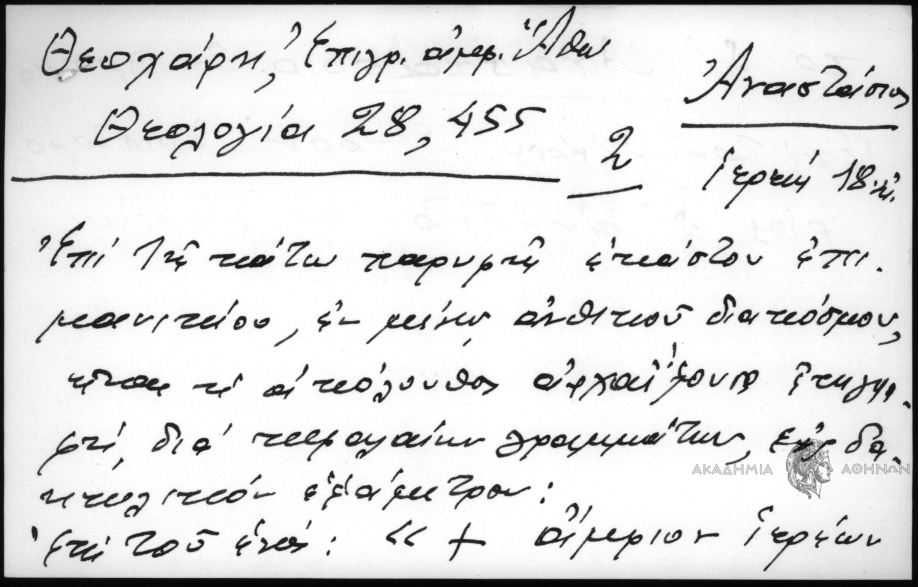 Θεοχάρη, Ἐπιγρ. ἀμφ. Ἄθω
Θεολογία 28, 455
2
Ἀναστάσιος
ἱερεύς 18 αἰ.
Ἐπὶ τῆς κάτω παρυφῆς ἑκάστου ἐπι-
μανικίου, ἐν μέσῳ ἀνθικοῦ διακόσμου,
εἶναι τὸ ἀκόλουθον ἀρχαΐζουσα
διὰ κεφαλαίων γραμμάτων, εἰς δα-
κτυλικὸν ἑξάμετρον:
ἐπὶ τοῦ ἑνός: « + ἀμφίον ἱερέων
ΑΚΑΔΗΜΙΑ ΑΘΗΝΩΝ